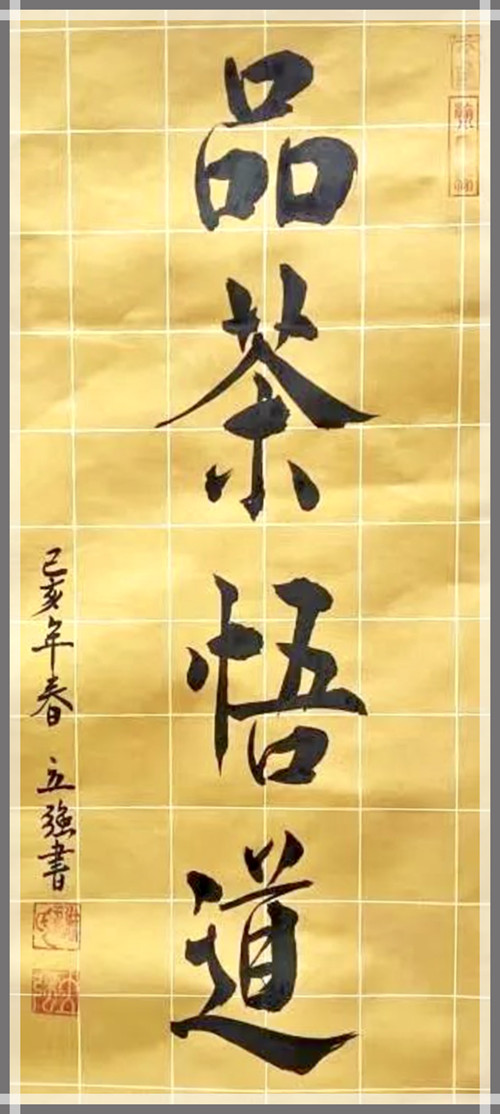 品茶悟道
己亥年春 立強書